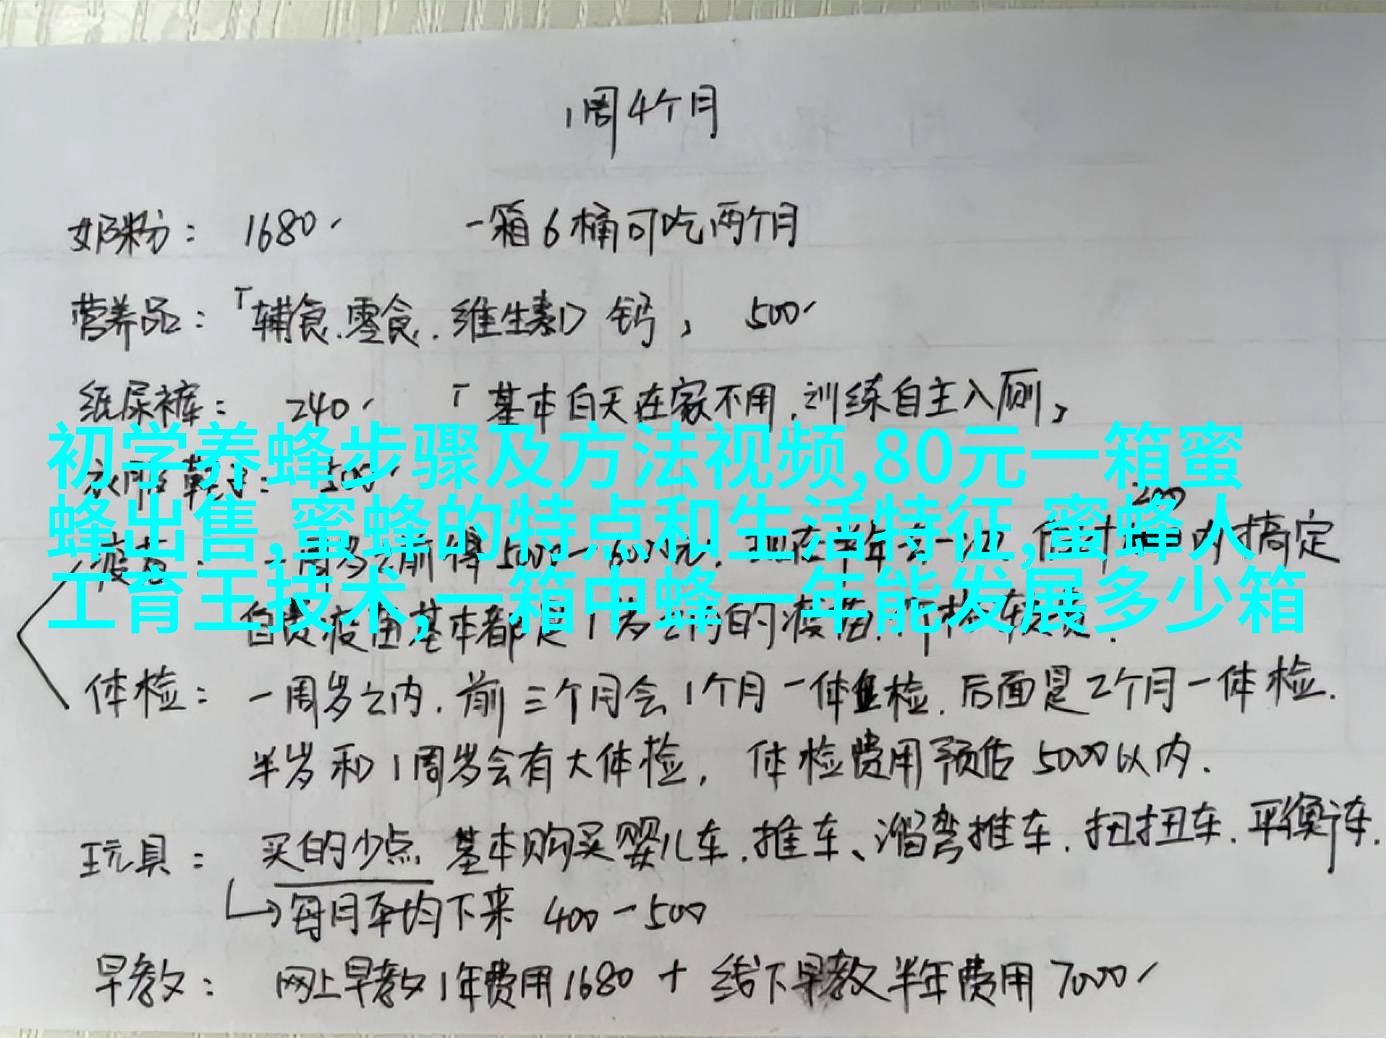 1周4个月
奶粉： 1680 一箱6桶可吃两个月
营养品：「辅食.零食.维生素D 钙」 500
纸尿裤： 240 「基本白天在家不用,训练自主入厕」
初学养蜂步骤及方法视频,80元一箱蜜
蜂出售,蜜蜂的特点和生活特征,蜜蜂人
工育王技术,一箱中蜂一年能发展多少箱
200
内搞定
自费疫苗基本都是1岁之内的疫苗
体检： 一周岁之内.前三个月会1个月一体检.后面是2个月一体检.
半岁和1周岁会有大体检, 体检费用预估5000以内.
玩具： 买的少点 基本购买婴儿车.推车、溜弯推车.扭扭车.平衡车.
每月平均下来 400-500
早教： 网上早教1年费用1680 + 线下早教半年费用7000